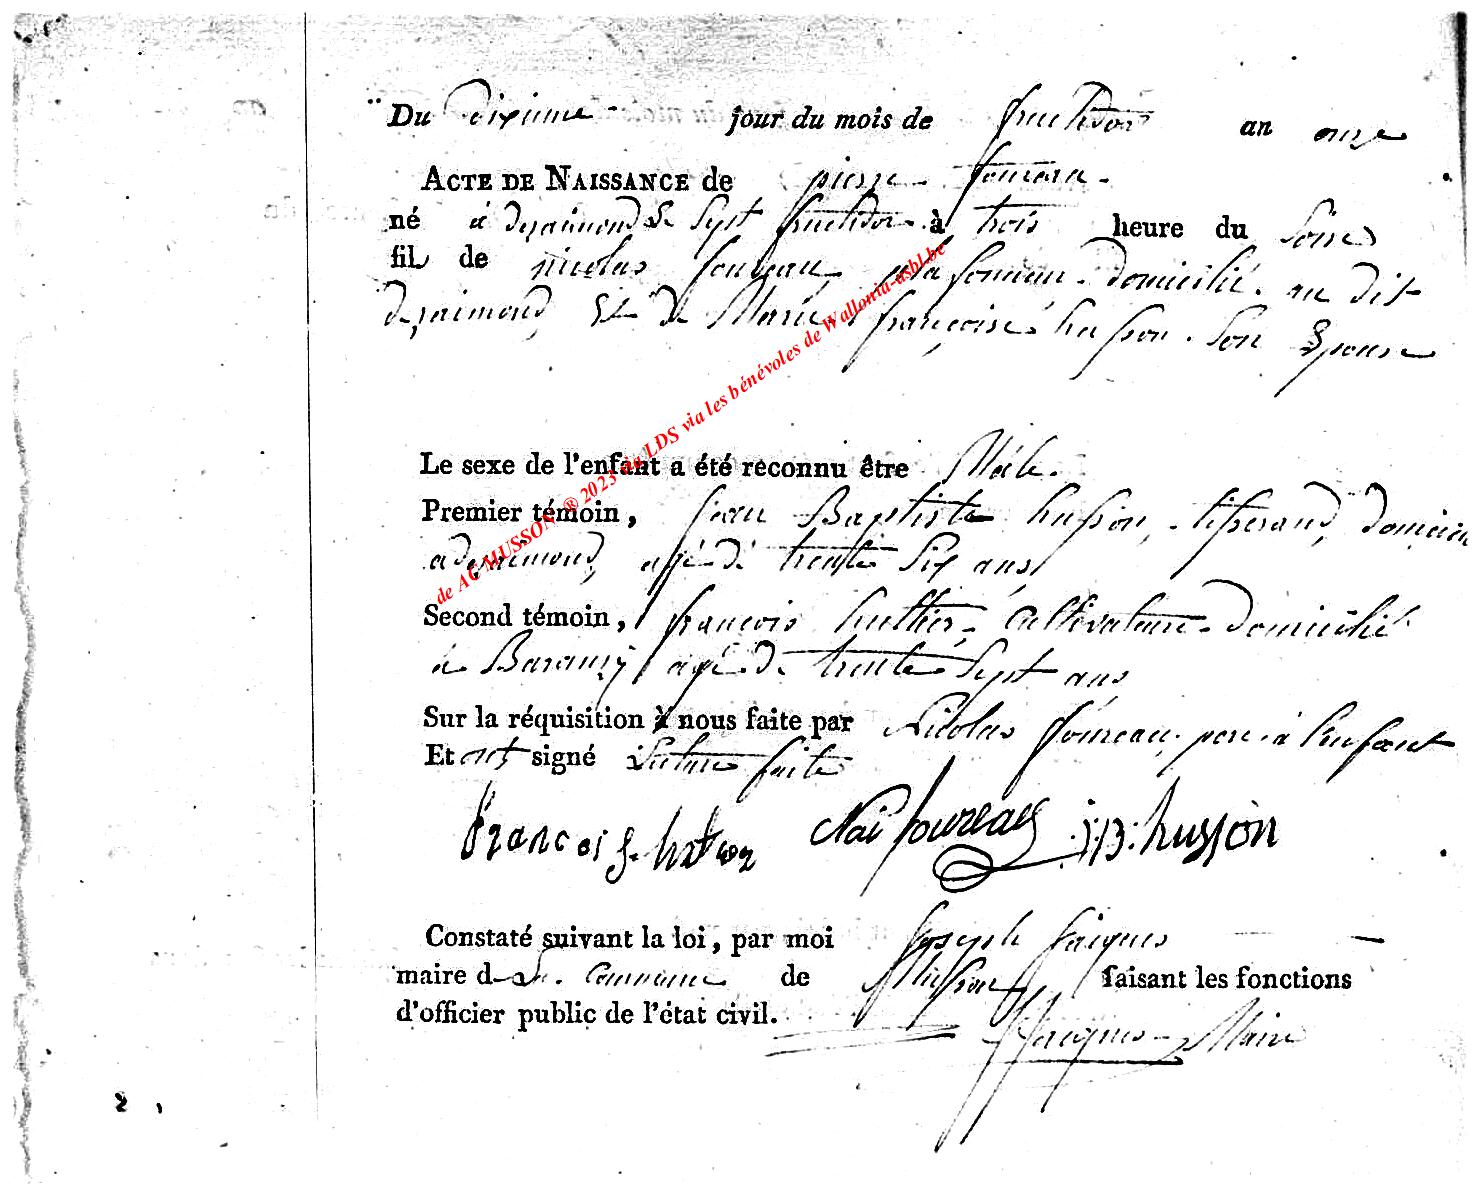 Du dixieme jour du mois de fructidor an onze
ACTE DE NAISSANCE de pierre foureau.
né à le sept fructidor à trois heure du Soire
fil de nicolas foureau, domicilié au dit
Et de Marie françoise husson Son Epouse
Le sexe de l'enfant a été reconnu être Mâle.
Premier témoin, jean Baptiste husson, tisserand, domicilié
agé de trente Six ans
Second témoin, françois Cultivateur domicilié
à Baranzy agé de trente Sept ans
Sur la réquisition à nous faite par Nicolas foureau, pere à l'enfant
Et ont signé Lecture faite
François Foureau J:B: husson
Constaté suivant la loi, par moi Joseph Jacques
maire de la Commune de Musson faisant les fonctions
d'officier public de l'état civil.
Jacques Maire
de AC MUSSON ® 2023 du LDS via les bénévoles de Wallonia-asbl.be
2